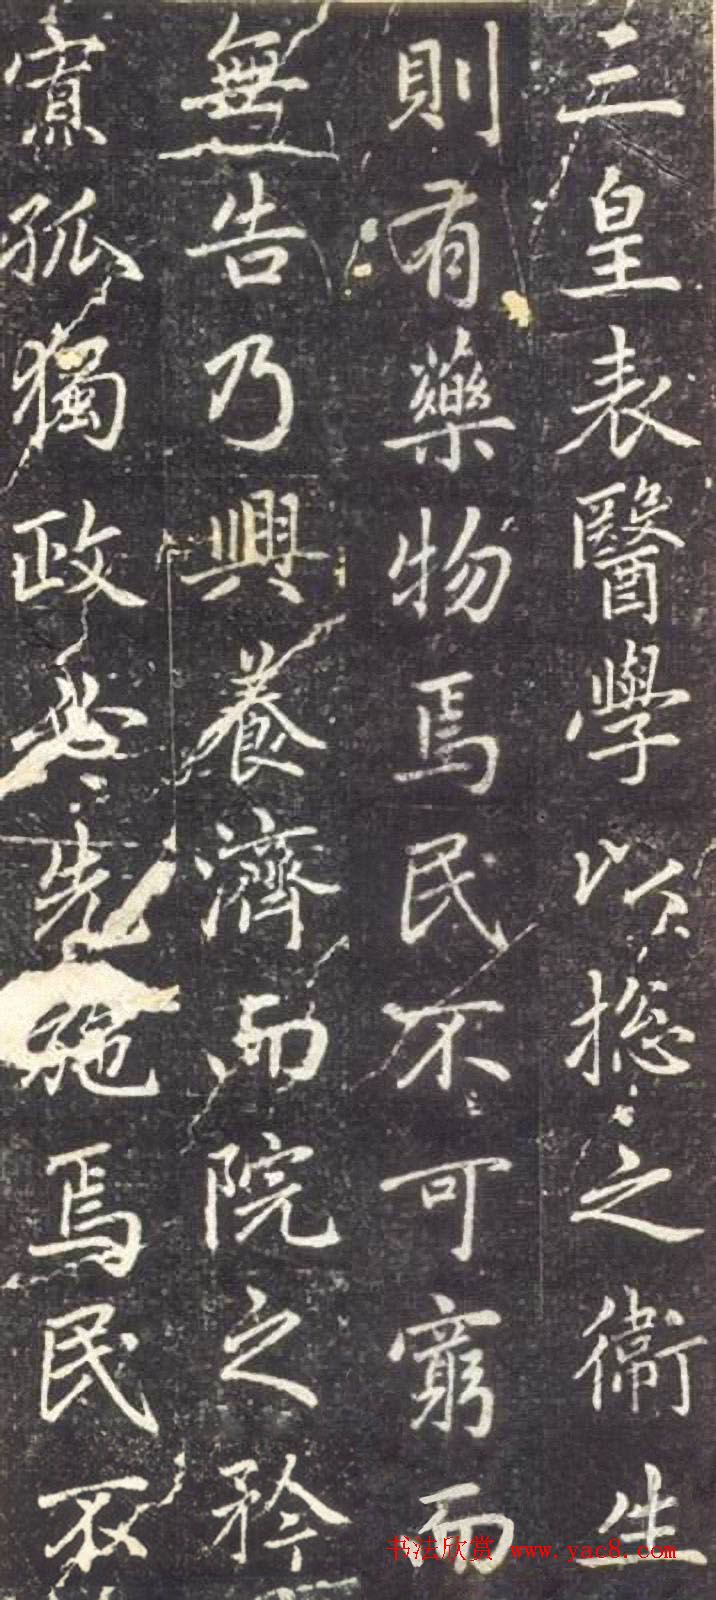 三皇表醫學以揔之衛生
則有藥物焉民不可窮而
無告乃興養濟而院之矜
寡孤獨政必先施焉民不
书法欣赏 www.yac8.com